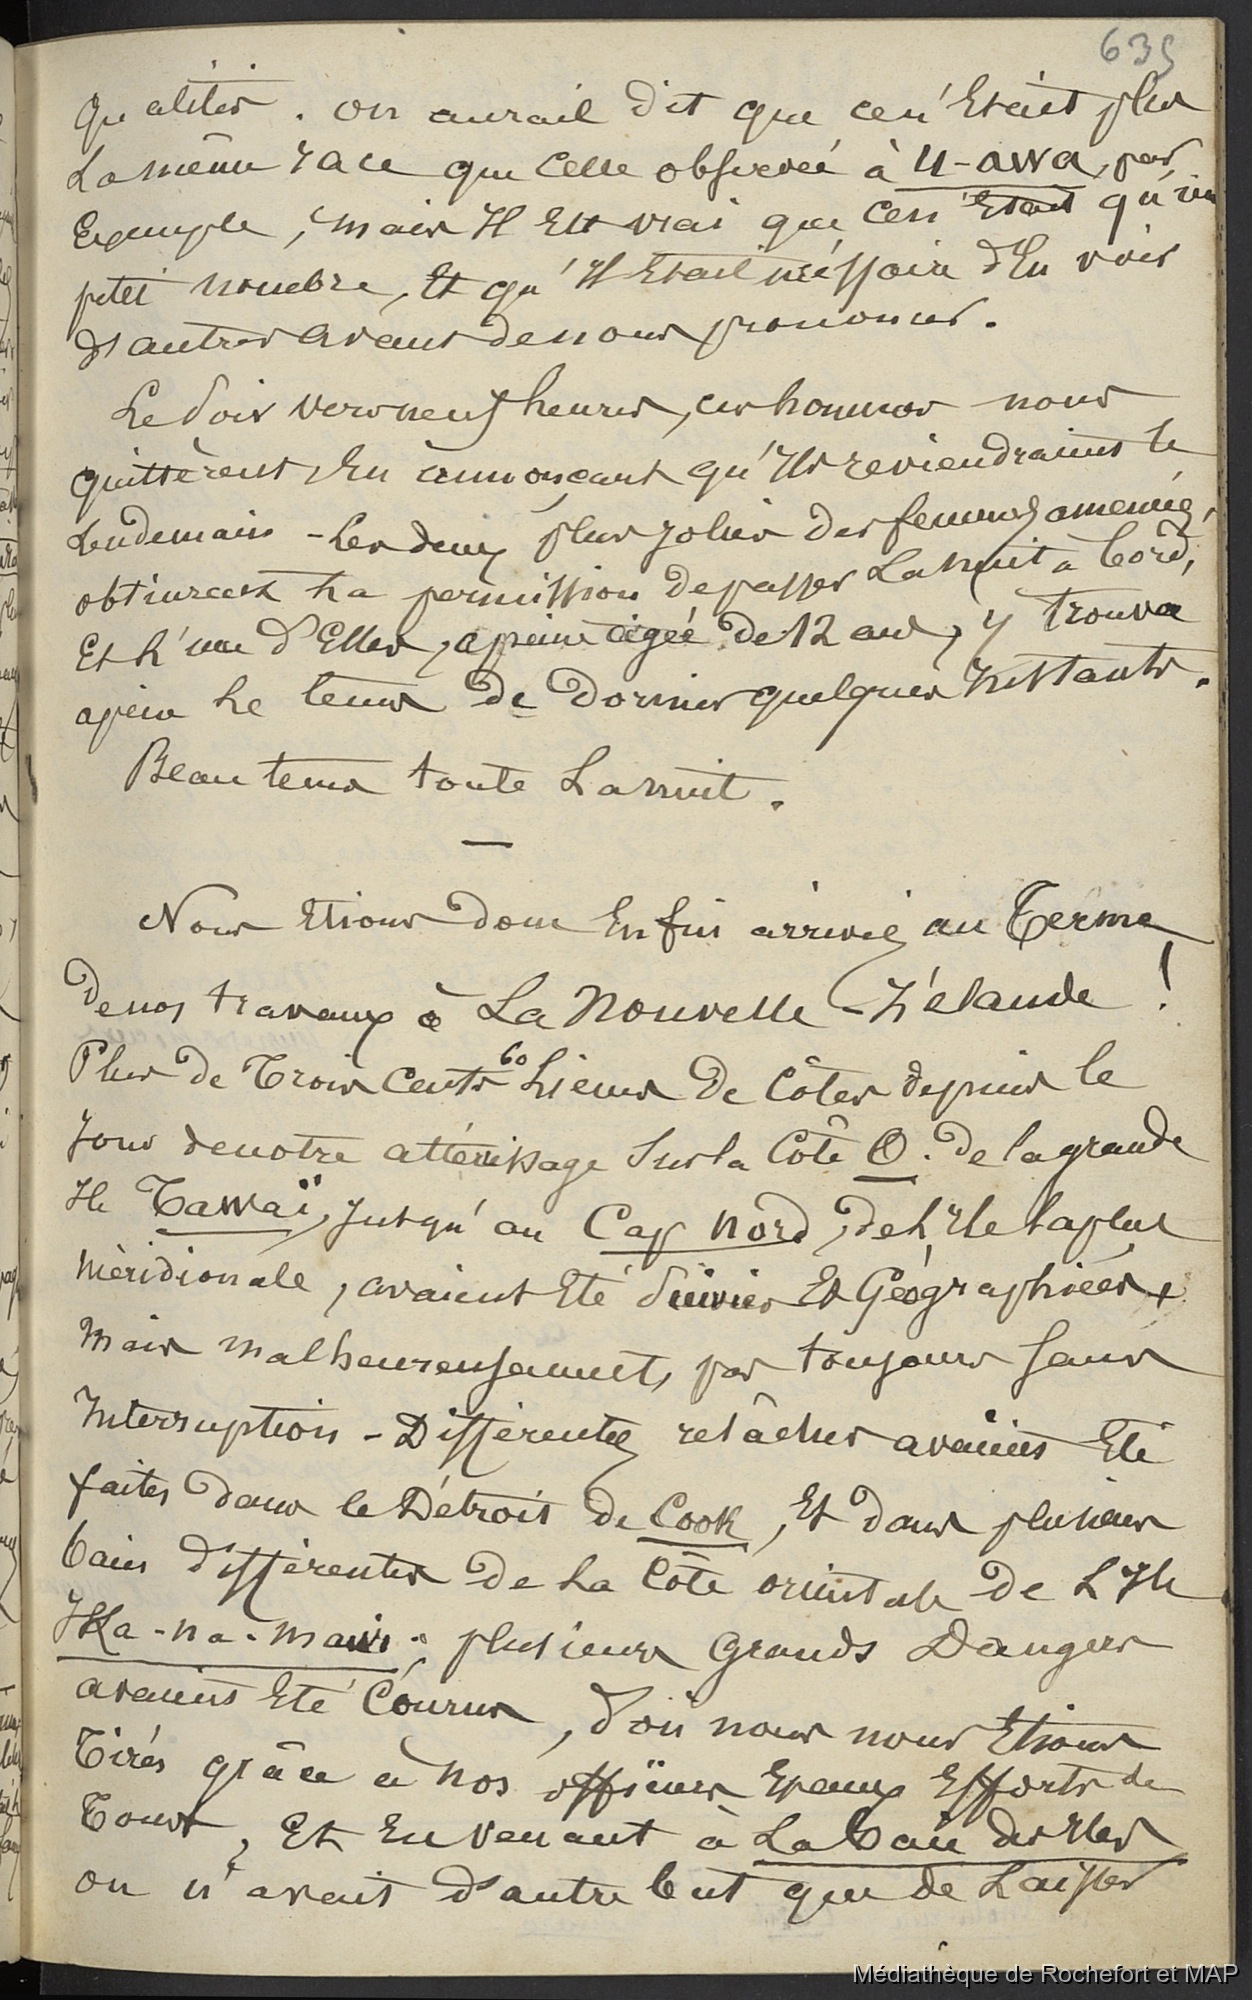 635
qualités. on aurait dit que ce n'Etait plus
La même race que Celle observée à U-awa, par
Exemple, mais Il Est vrai que Ce n'Etait qu'un
petit nombre, Et qu'Il Etait nécessaire d'En voir
d'autres avant de nous prononcer.
Le Soir vers neuf heures, ces hommes nous
quittèrent En annonçant qu'Ils reviendraient le
Lendemain - Les deux plus Jolies des femmes amenées,
obtinrent La permission de passer La nuit à bord,
Et L'une d'Elles, apeine âgée de 12 ans, y trouva
apeine Le tems de Dormir quelques Instants.
Beau tems toute La nuit.
—
Nous Etions donc Enfin arrivés au Terme
De nos travaux à La Nouvelle-Zélande !
Plus de Trois Cents 60 Lieues De Côtes depuis le
Jour de notre attérissage Sur la Côte O. de la grande
Ile Tawaï, Jusqu'au Cap Nord, de L'Ile la plus
Méridionale, avaient Eté Suivies Et Géographiées,
Mais malheureusement, pas toujours Sans
Interruption - Différentes relâches avaient Eté
faites dans le Détroit de Cook, Et dans plusieurs
baies différentes de La Côte orientale de L'Ile
Ika-na-mawi; plusieurs Grands Dangers
avaient Eté Courus, d'où nous nous Etions
Tirés grâce à nos officiers Et aux Efforts de
Tous, Et En venant à La baie des Iles
on n'avait d'autre but que de Laisser
Médiathèque de Rochefort et MAP